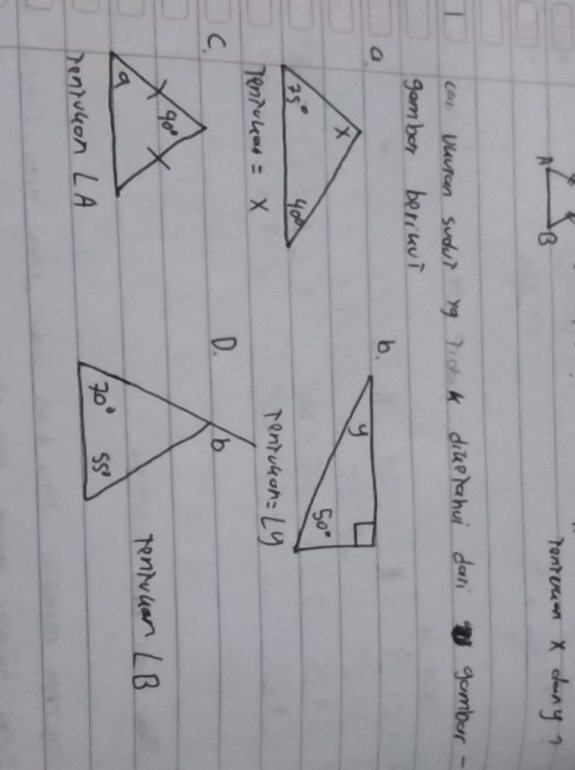 A
B
Tentukan x dan y ?
1 cari ukuran sudut yg tidak diketahui dari gambar -
gambar berikut
a.
x
75°
40°
Tentukan = x
b.
y
50°
Tentukan = ∠y
C.
90°
a
Tentukan ∠A
D.
b
70°
55°
Tentukan ∠B